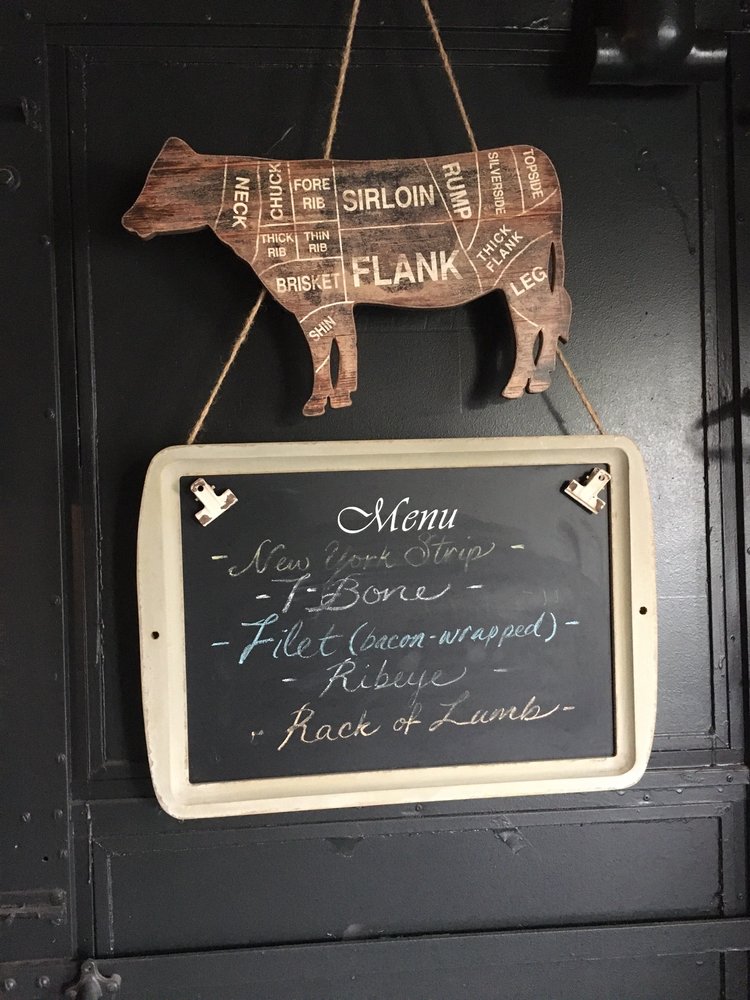 NECK
CHUCK
FORE
RIB
SIRLOIN
RUMP
SILVERSIDE
TOPSIDE
THICK
RIB
THIN
RIB
THICK
FLANK
BRISKET
FLANK
LEG
SHIN
Menu
- New York Strip -
- T-Bone -
- Filet (bacon-wrapped) -
- Ribeye -
- Rack of Lamb -